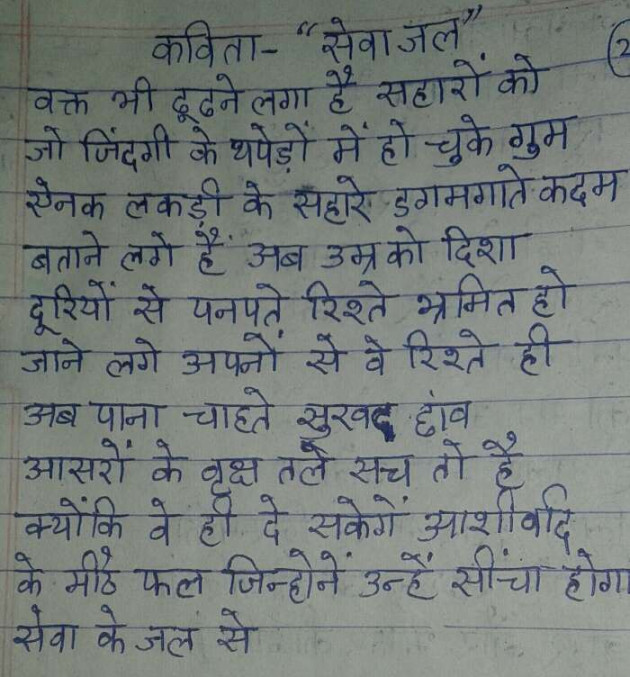 कविता - "सेवा जल"
(2
वक्त भी ढूढने लगा है सहारों को
जो जिंदगी के थपेड़ों में हो चुके गुम
ऐनक लकड़ी के सहारे डगमगाते कदम
बताने लगे हैं अब उम्र को दिशा
दूरियों से पनपते रिश्ते भ्रमित हो
जाने लगे अपनों से वे रिश्ते ही
अब पाना चाहते सुखद छांव
आसरों के वृक्ष तले सच तो है
क्योंकि वे ही दे सकेगें आशीर्वाद
के मीठे फल जिन्होनें उन्हें सींचा होगा
सेवा के जल से